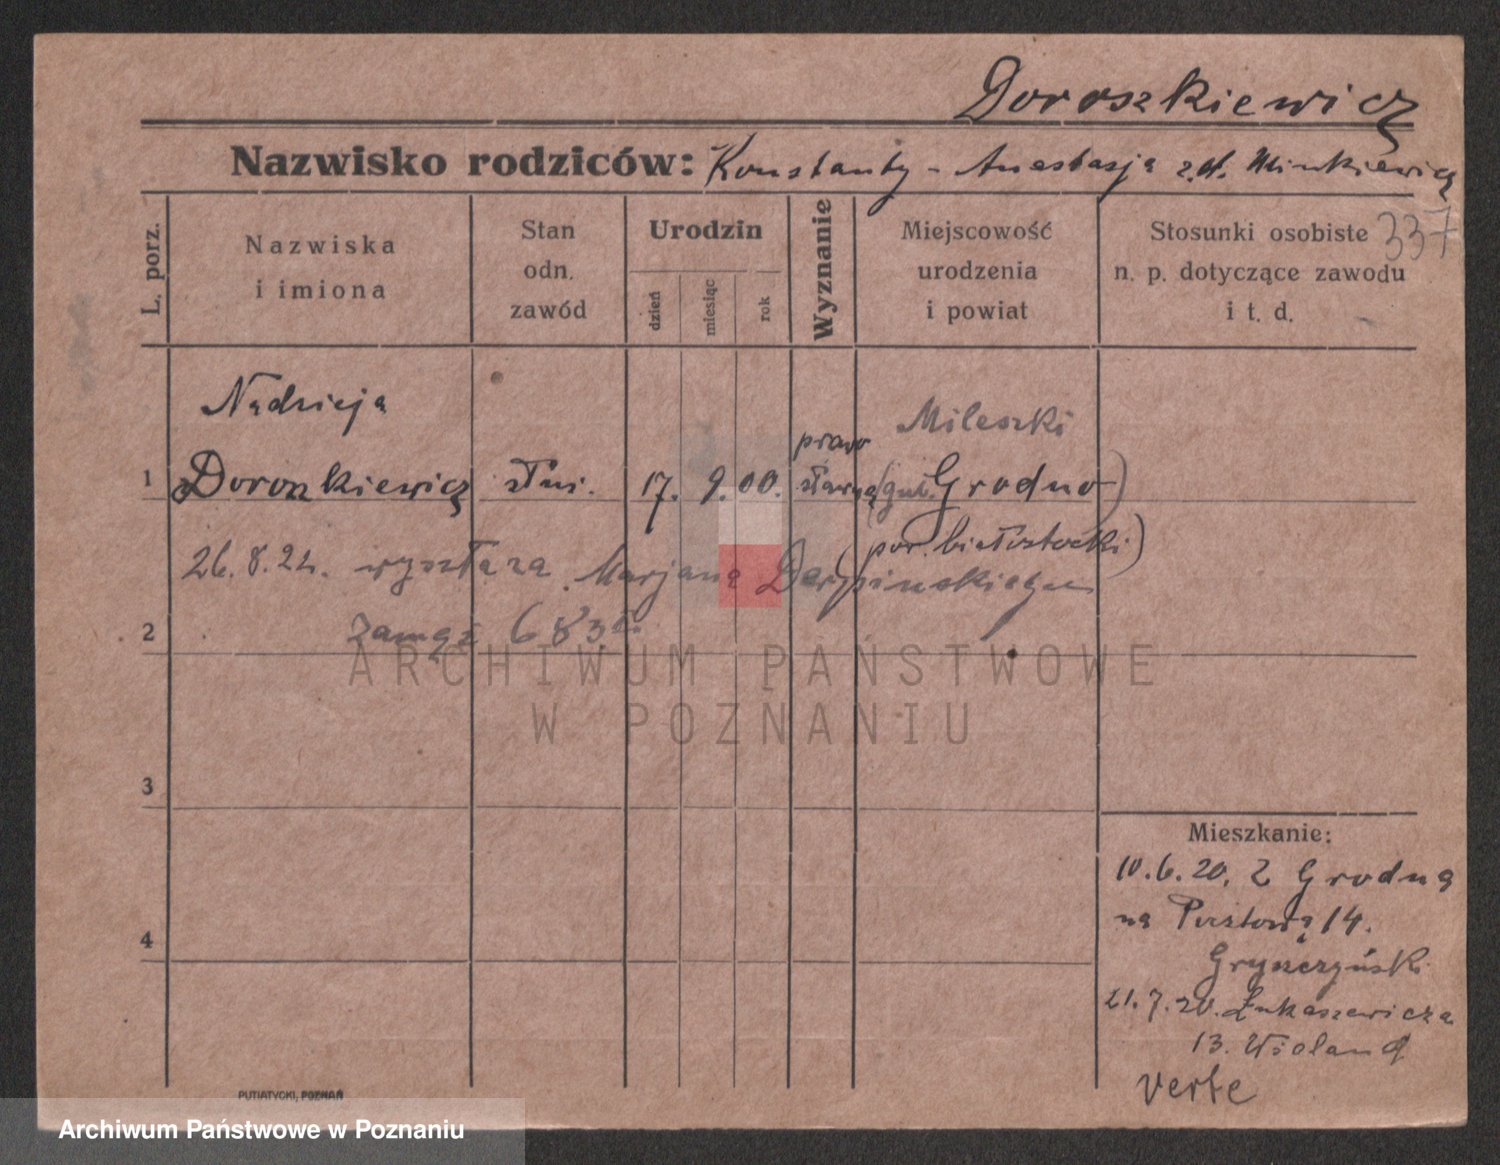 Doroszkiewicz
Nazwisko rodziców: Konstanty - Anastasja z.d. Minkiewicz
337
L. porz.
Nazwiska
i imiona
Stan
odn.
zawód
Urodzin
dzień
miesiąc
rok
Wyznanie
Miejscowość
urodzenia
i powiat
Stosunki osobiste
n. p. dotyczące zawodu
i t. d.
Nadzieja
Mileszki
prawo
1 Doroszkiewicz służ. 17. 9. 00. sławną (gub. Grodno)
(pow. białostocki)
26.8.22. wyszła za Marjana
zamąż
2
ARCHIWUM PAŃSTWOWE
W POZNANIU
3
4
Mieszkanie:
10.6.20. z Grodna
na 14.
Gryszczyński
21.7.20. Łukaszewicza
13. Wieland
verte
PUTIATYCKI, POZNAŃ
Archiwum Państwowe w Poznaniu